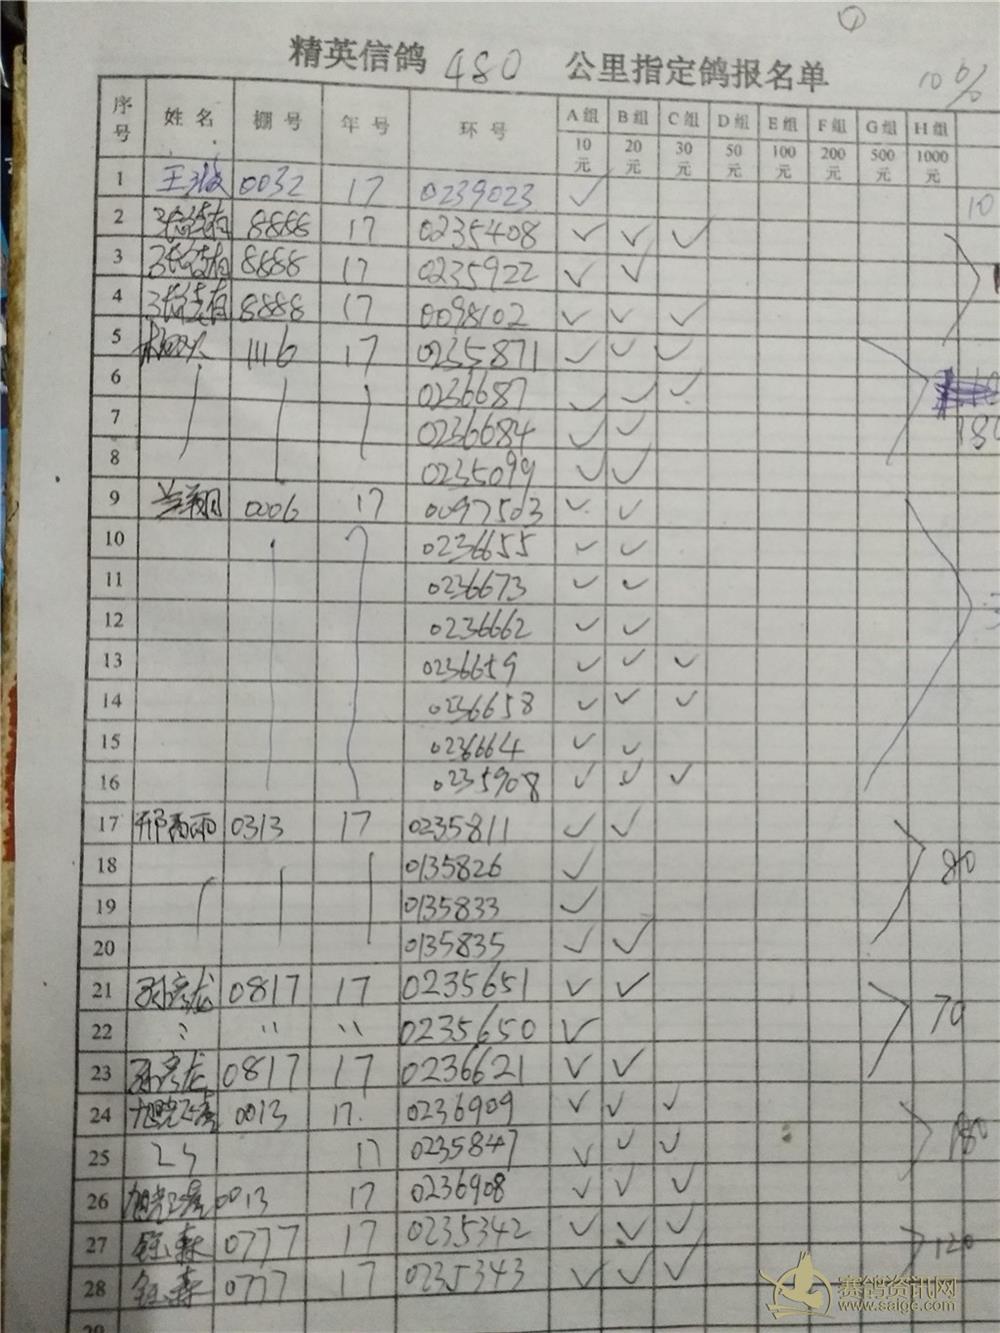 精英信鸽 480 公里指定鸽报名单 10%
序号 姓名 棚号 年号 环号 A组 B组 C组 D组 E组 F组 G组 H组
10元 20元 30元 50元 100元 200元 500元 1000元
1 0032 17 0239023 ✓ 10
2 8888 17 0235408 ✓ ✓ ✓
3 8888 17 0235922 ✓ ✓
4 8888 17 0098102 ✓ ✓ ✓
5 1116 17 0235871 ✓ ✓ ✓
6 0236687 ✓ ✓ ✓
7 0236684 ✓ ✓
8 0235099 ✓ ✓
9 兰翔 0006 17 0097503 ✓ ✓
10 0236655 ✓ ✓
11 0236673 ✓ ✓
12 0236662 ✓ ✓
13 0236659 ✓ ✓ ✓
14 0236658 ✓ ✓ ✓
15 0236664 ✓ ✓
16 0235908 ✓ ✓ ✓
17 0313 17 0235811 ✓ ✓
18 0135826 ✓ 80
19 0135833 ✓
20 0135835 ✓ ✓
21 孙彦龙 0817 17 0235651 ✓ ✓
22 〃 〃 〃 0235650 ✓ 70
23 孙彦龙 0817 17 0236621 ✓ ✓
24 0013 17. 0236909 ✓ ✓ ✓
25 17 0235847 ✓ ✓ ✓ 180
26 0013 17 0236908 ✓ ✓ ✓
27 钰森 0777 17 0235342 ✓ ✓ ✓ 120
28 钰森 0777 17 0235343 ✓ ✓ ✓
29
赛鸽资讯网
www.saige.com